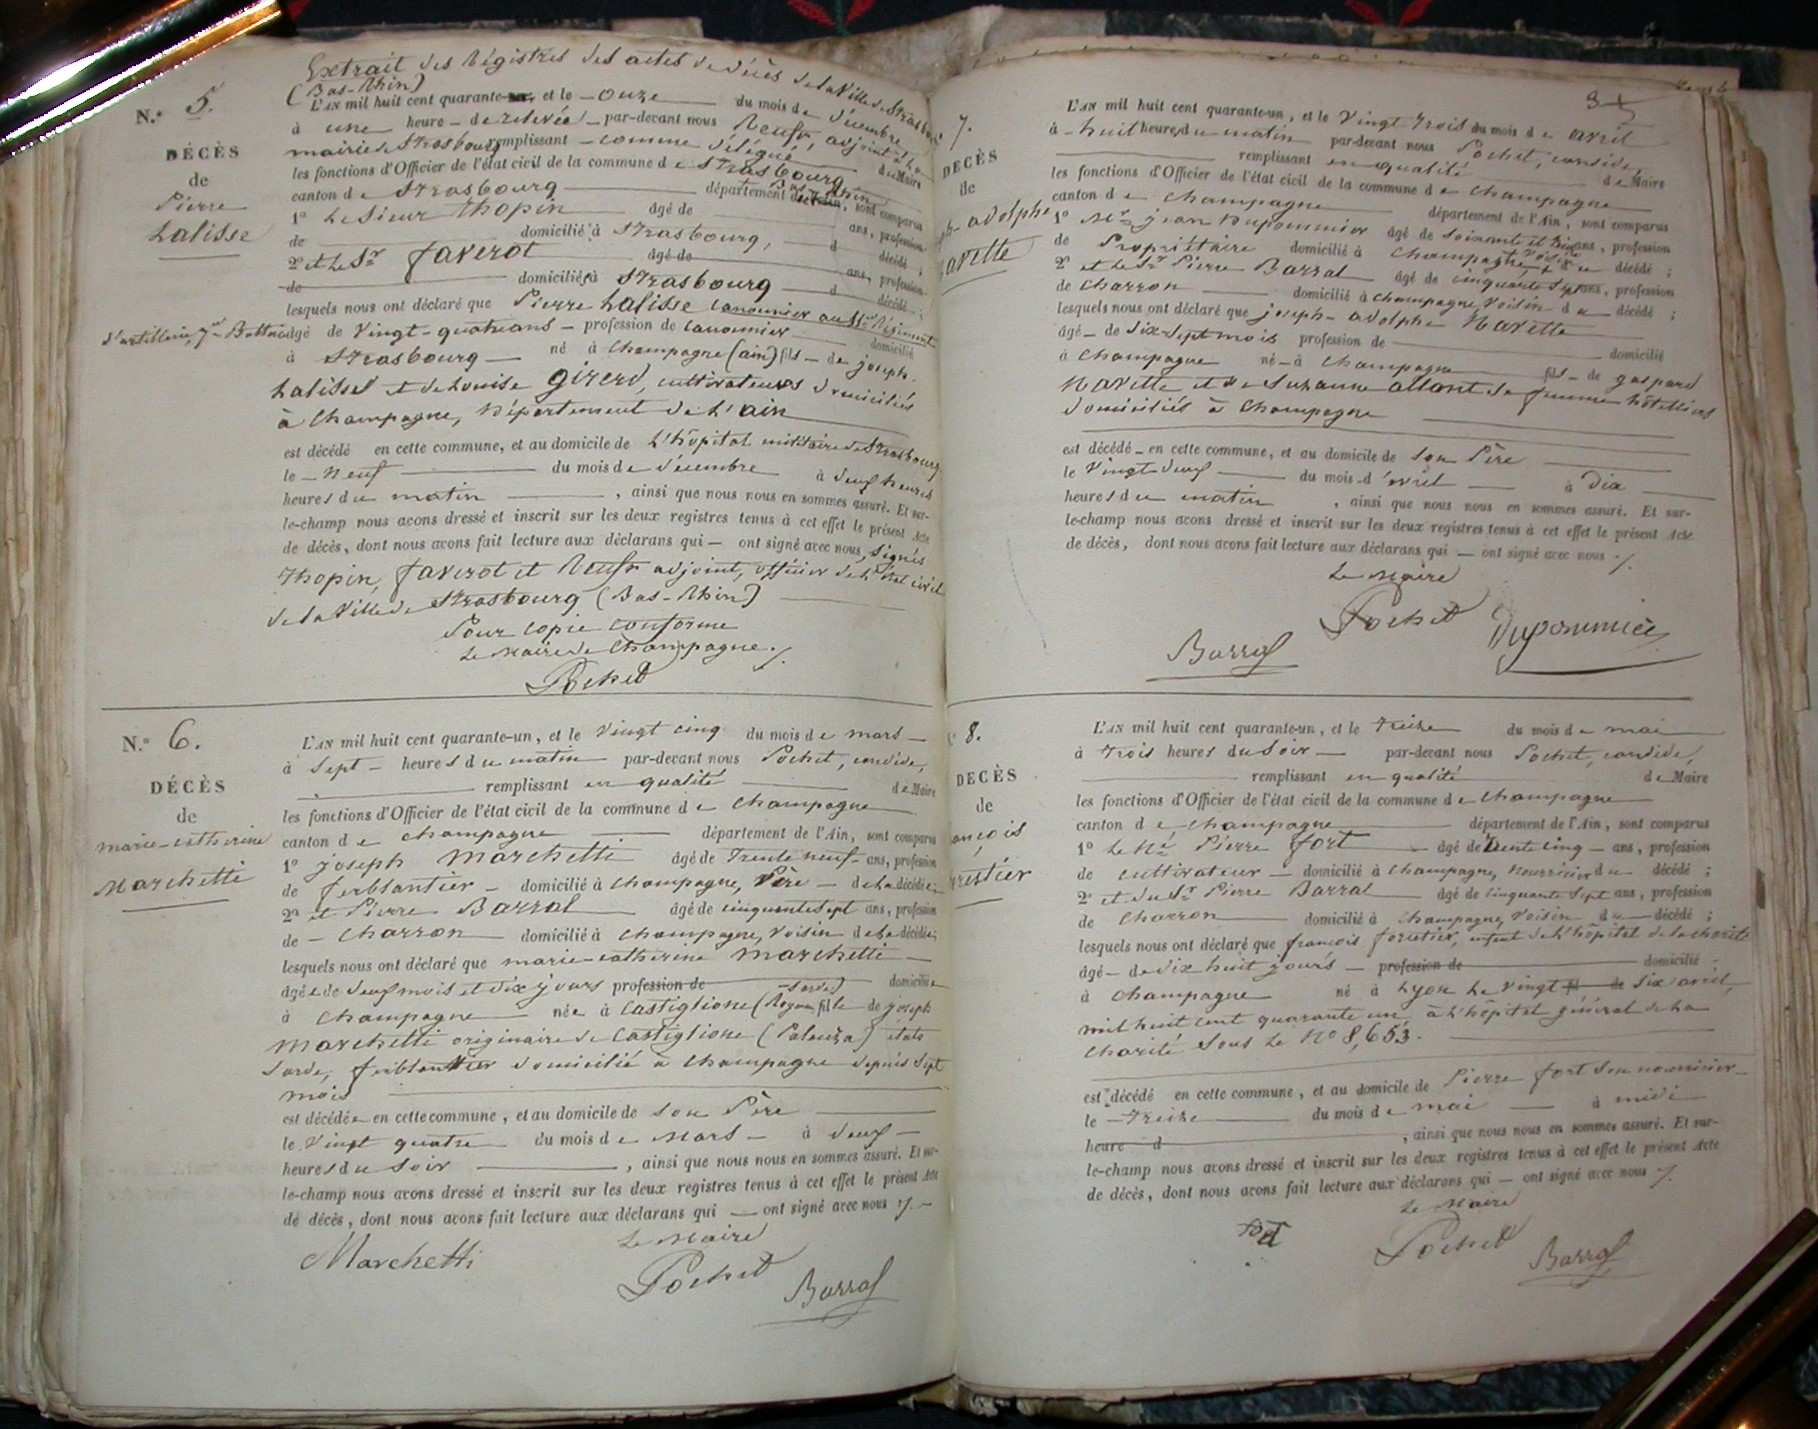 Extrait des Régistres des actes de décès de la Ville de Strasbourg
(Bas-Rhin)
N.° 5.
DÉCÈS
de
Pierre
Lalisse
L'AN mil huit cent quarante et le - onze du mois de décembre
à une heure - de relevée - par-devant nous adjoint à la
mairie de Strasbourg remplissant - comme délégué du Maire
les fonctions d'Officier de l'état civil de la commune de Strasbourg
canton de Strasbourg département du Bas-Rhin, sont comparus
1° Le Sieur Thopin âgé de ans, profession
de domicilié à Strasbourg, d décédé ;
2° et le Sr Faverot âgé de ans, profession
de domiciliés à Strasbourg d décédé ;
lesquels nous ont déclaré que Pierre Lalisse canonnier au Régiment
d'artillerie, 7me Batterie âgé de Vingt-quatre ans - profession de canonnier domicilié
à Strasbourg né à Champagne (ain) fils - de joseph
Lalisse et de Louise Girerd, cultivateurs domiciliés
à Champagne, Département de l'ain
est décédé en cette commune, et au domicile de L'hôpital militaire de Strasbourg
le - Neuf du mois de décembre à deux heures
heures du matin , ainsi que nous nous en sommes assuré. Et sur-
le-champ nous avons dressé et inscrit sur les deux registres tenus à cet effet le présent Acte
de décès, dont nous avons fait lecture aux déclarans qui - ont signé avec nous, Signés
Thopin, Faverot et adjoint, officier de l'état civil
de la Ville de Strasbourg (Bas-Rhin)
Pour copie conforme
Le Maire de Champagne
Pochet
N.° 6.
DÉCÈS
de
marie-catherine
Marchetti
L'AN mil huit cent quarante-un, et le Vingt cinq du mois de mars
à Sept - heures du matin par-devant nous Pochet, candide,
remplissant en qualité de Maire
les fonctions d'Officier de l'état civil de la commune de Champagne
canton de Champagne département de l'Ain, sont comparus
1° joseph Marchetti âgé de Trente neuf ans, profession
de ferblantier - domicilié à Champagne, Père - de la décédée ;
2° et Pierre Barral âgé de cinquante Sept ans, profession
de - Charron domicilié à Champagne, Voisin de la décédée ;
lesquels nous ont déclaré que marie-catherine Marchetti
âgée de deux mois et dix jours profession de domiciliée
à Champagne née à Castiglione (Royau. Sarde) fille de joseph
Marchetti originaire de Castiglione (Palenza) états
Sarde, ferblantier domicilié à Champagne depuis Sept
mois
est décédée en cette commune, et au domicile de son Père
le Vingt quatre du mois de Mars - à deux
heures du soir , ainsi que nous nous en sommes assuré. Et sur-
le-champ nous avons dressé et inscrit sur les deux registres tenus à cet effet le présent Acte
de décès, dont nous avons fait lecture aux déclarans qui - ont signé avec nous
Le Maire
Marchetti Pochet Barral
7.
DÉCÈS
de
adolphe
Navette
L'AN mil huit cent quarante-un, et le Vingt trois du mois de avril
à - huit heures du matin par-devant nous Pochet, candide,
remplissant en qualité de Maire
les fonctions d'Officier de l'état civil de la commune de Champagne
canton de Champagne département de l'Ain, sont comparus
1° Mr jean Dupommier âgé de soixante et ans, profession
de Propriétaire domicilié à Champagne, Voisin du décédé ;
2° et le Sr Pierre Barral âgé de cinquante Sept ans, profession
de Charron domicilié à Champagne Voisin du décédé ;
lesquels nous ont déclaré que joseph-adolphe Navette
âgé - de dix Sept mois profession de domicilié
à Champagne né - à Champagne fils - de gaspard
Navette et de Suzanne allont sa femme hôtelliers
domiciliés à Champagne
est décédé - en cette commune, et au domicile de son Père
le Vingt deux du mois d'avril à Dix
heures du matin , ainsi que nous nous en sommes assuré. Et sur-
le-champ nous avons dressé et inscrit sur les deux registres tenus à cet effet le présent Acte
de décès, dont nous avons fait lecture aux déclarans qui - ont signé avec nous
Le Maire
Pochet Dupommier
Barral
8.
DÉCÈS
de
ançois
restier
L'AN mil huit cent quarante-un, et le treize du mois de mai
à trois heures du soir - par-devant nous Pochet, candide,
remplissant en qualité de Maire
les fonctions d'Officier de l'état civil de la commune de Champagne
canton de Champagne département de l'Ain, sont comparus
1° Le Pierre Fort âgé de trente cinq - ans, profession
de cultivateur - domicilié à Champagne, nourricier du décédé ;
2° et du Sr Pierre Barral âgé de cinquante Sept ans, profession
de Charron domicilié à Champagne, Voisin du décédé ;
lesquels nous ont déclaré que françois forestier, enfant de l'hôpital de la charité
âgé - de dix huit jours - profession de domicilié
à Champagne né à Lyon Le Vingt fil de Six avril,
mil huit cent quarante un à l'hôpital général de la
Charité sous le N° 8,653.
est décédé en cette commune, et au domicile de Pierre Fort son nourricier
le - treize du mois de mai à midi
heure d , ainsi que nous nous en sommes assuré. Et sur-
le-champ nous avons dressé et inscrit sur les deux registres tenus à cet effet le présent Acte
de décès, dont nous avons fait lecture aux déclarans qui - ont signé avec nous
Le Maire
Pochet Barral